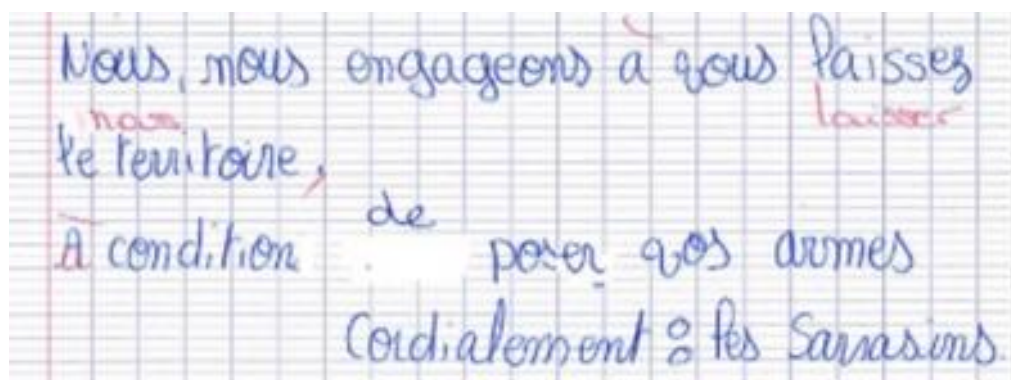 Nous, nous engageons à vous laissez
nous laisser
le territoire,
de
À condition poser vos armes
Cordialement : les Sarrasins.